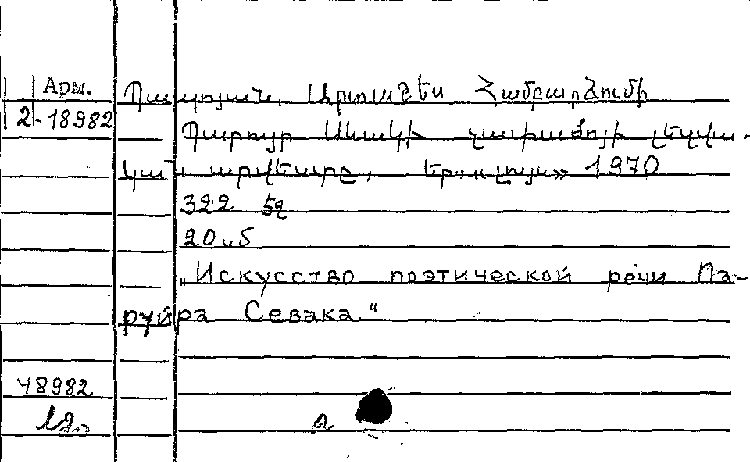 Арм.
2-18982
Պապոյան, Արտաշես Համբարձումի
Պարույր Սևակի չափածոյի լեզվա-
կան արվեստը, Եր., «Լույս» 1970
322 էջ
20սմ
"Искусство поэтической речи Па-
руйра Севака"
48982